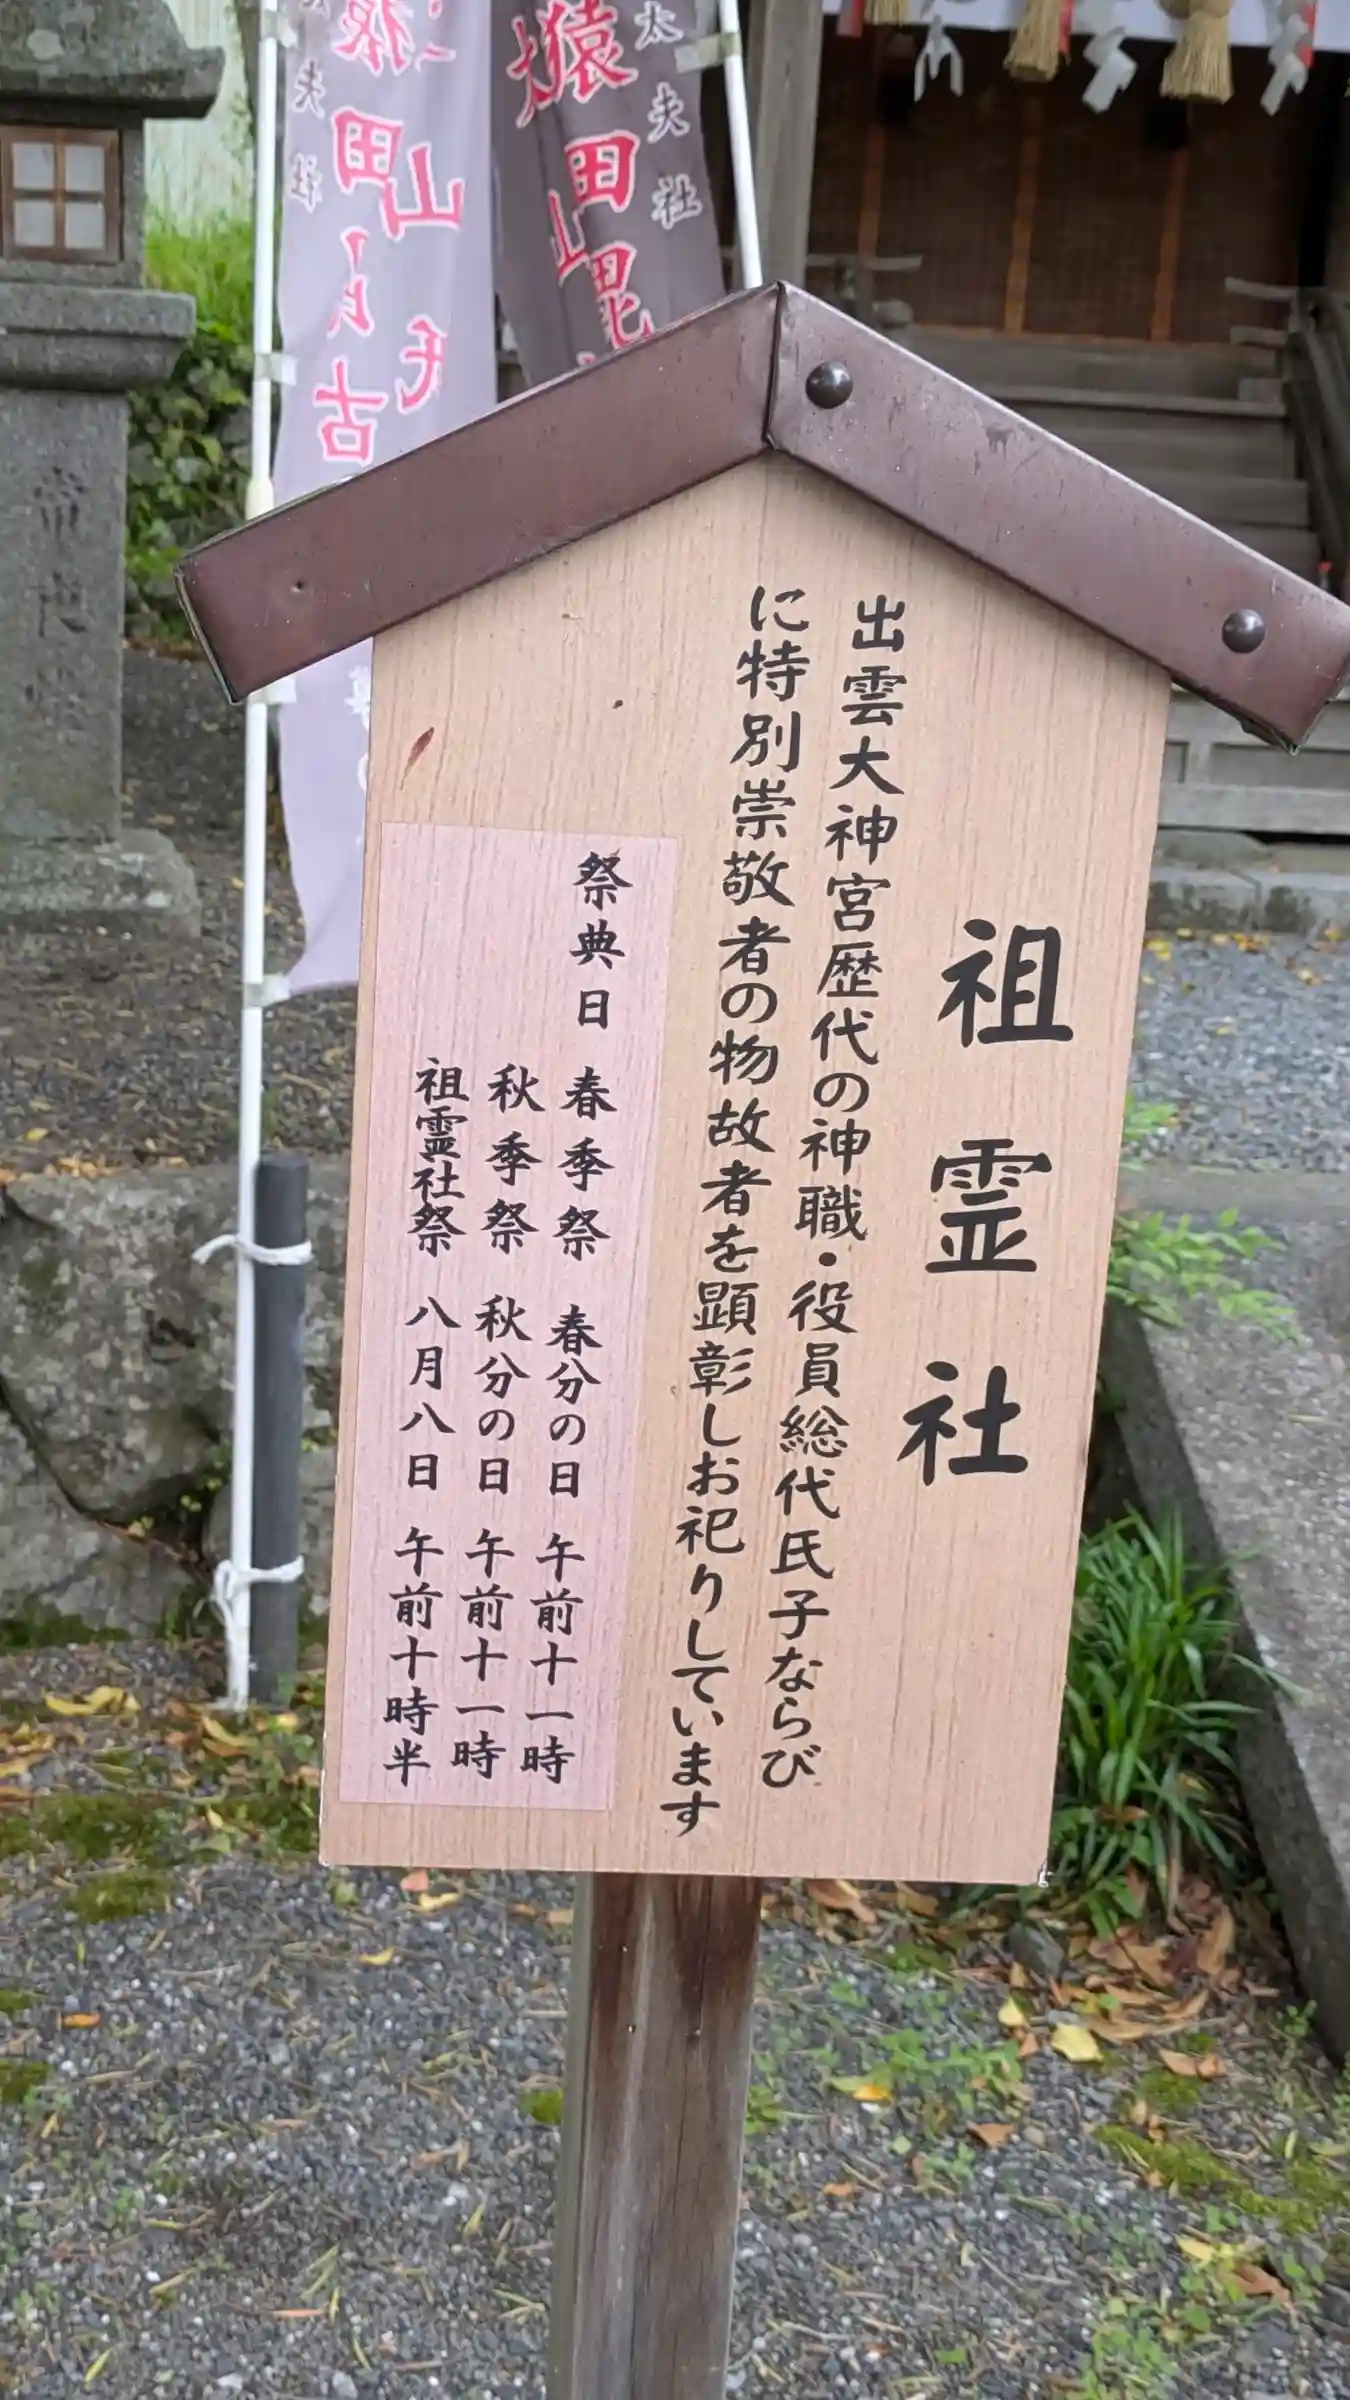 祖霊社
出雲大神宮歴代の神職・役員総代氏子ならび
に特別崇敬者の物故者を顕彰しお祀りしています
祭典日 春季祭 春分の日 午前十一時
秋季祭 秋分の日 午前十一時
祖霊社祭 八月八日 午前十時半
太夫社
猿田
夫社
猿田
山